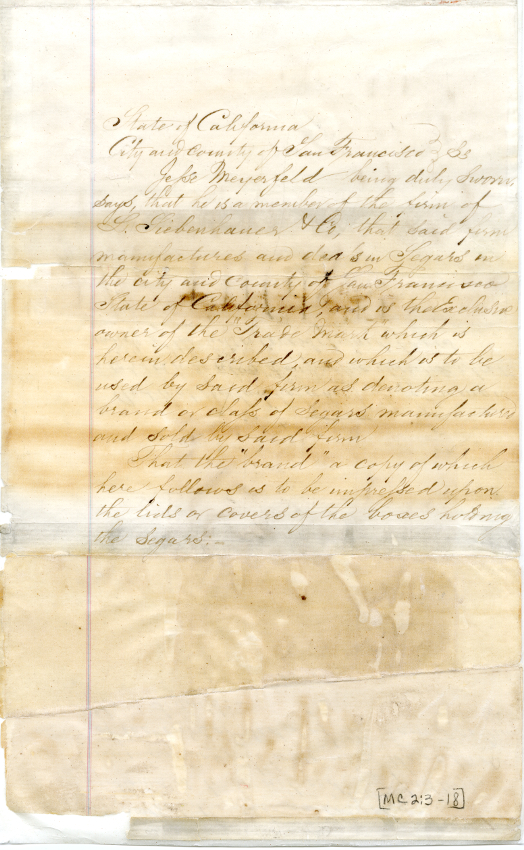 State of California
City and County of San Francisco } Ss
Jesse Meyerfeld being duly sworn,
says, that he is a member of the firm of
S. Siebenhauer & Co, that said firm
manufactures and deals in Segars in
the city and county of San Francisco
State of California, and is the Exclusive
owner of the "Trade Mark which is
herein described, and which is to be
used by said firm as denoting a
brand or class of Segars manufactured
and sold by said firm
That the "brand" a copy of which
here follows is to be impressed upon
the lids or covers of the boxes holding
the Segars:—
[MC 2:3-18]